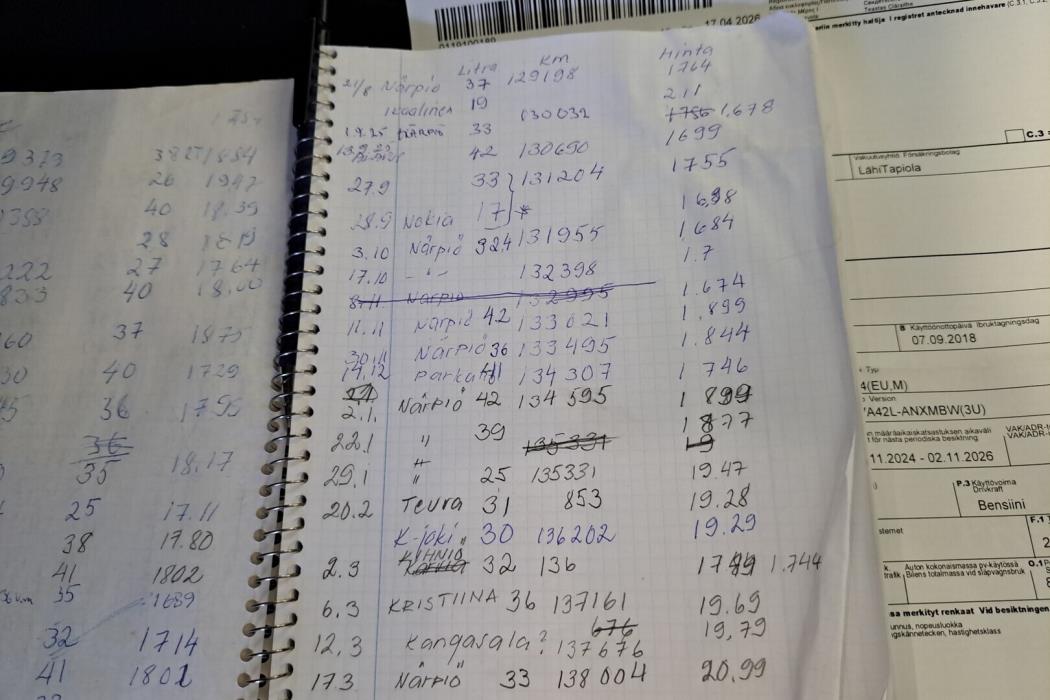 0119100189
17.04.2026
erin merkitty haltija I registret antecknad innehavare (C.3.1, C.3.2
Litra Km Hinta
21/8 Närpiö 37 129198 1764
Ikaalinen 19 211
1.9.25 NÄRPIÖ 33 130032 1756 1,678
42 130650 1699
27.9 33 131204 1755
28.9 Nokia 17 * 1698
3.10 Närpiö 324 131955 1684
17.10 - " - 132398 1.7
8.11 Närpiö 132995
11.11 Närpiö 42 133021 1.674
30.11 Närpiö 36 133495 1.899
14.12 Parkano 41 134307 1.844
2.1. Närpiö 42 134595 1 746
22.1 " 39 135331 1 899
29.1 " 25 135331 1877
20.2 Teuva 31 853 19.47
K-joki " 30 136202 19.28
2.3 KIHNIÖ 32 136 19.29
1744 1.744
6.3 KRISTIINA 36 137161 19.69
12.3 Kangasala? 676 137676 19,79
17.3 Närpiö 33 138004 20.99
9373 38 1684
9948 26 1947
1388 40 18.39
28
222 27 1764
833 40 18.00
60 37 1875
30 40 1729
36 17.95
36
35 18.17
25 17.11
38 17.80
41 1802
35 1689
32 1714
41 1801
C.3
Vakuutusyhtiö Försäkringsbolag
LähiTapiola
B Käyttöönottopäivä Ibruktagningsdag
07.09.2018
Typ
4(EU,M)
Version
A42L-ANXMBW(3U)
n määräaikaiskatsastuksen aikaväli
t för nästa periodiska besiktning
VAK/ADR-
VAK/ADR-
11.2024 - 02.11.2026
P.3 Käyttövoima
Drivkraft
Bensiini
F.1
2
Auton kokonaismassa pv-käytössä
Bilens totalmassa vid släpvagnsbruk
O.1
sa merkityt renkaat Vid besiktningen
unnus, nopeusluokka
gskännetecken, hastighetsklass